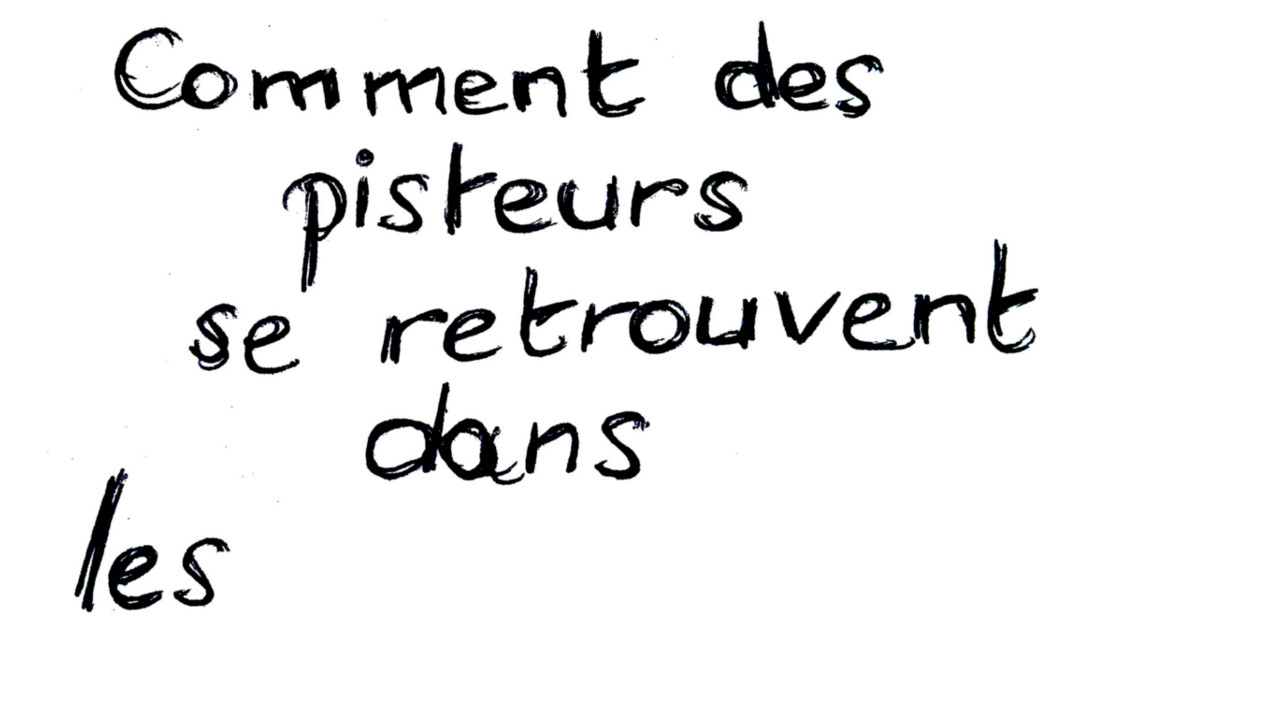 Comment des
pisteurs
se retrouvent
dans
les